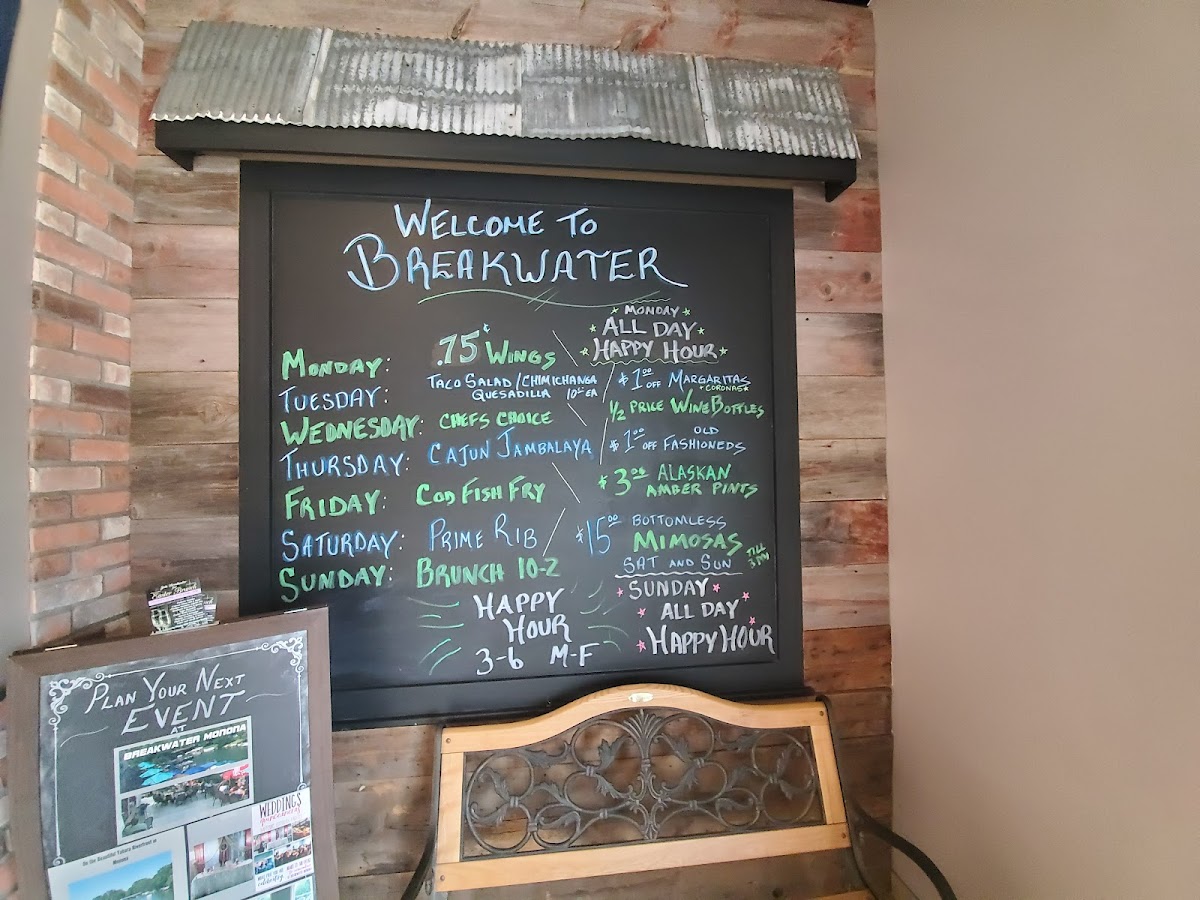 WELCOME TO
BREAKWATER
MONDAY
ALL DAY
HAPPY HOUR
MONDAY: .75¢ WINGS
TUESDAY: TACO SALAD/CHIMICHANGA
QUESADILLA 10⁰⁰ EA
$1⁰⁰ OFF MARGARITAS
+ CORONAS
WEDNESDAY: CHEFS CHOICE
1/2 PRICE WINE BOTTLES
THURSDAY: CAJUN JAMBALAYA
$1⁰⁰ OFF OLD
FASHIONEDS
FRIDAY: COD FISH FRY
$3⁰⁰ ALASKAN
AMBER PINTS
SATURDAY: PRIME RIB
$15⁰⁰ BOTTOMLESS
MIMOSAS
SAT AND SUN
TILL
3PM
SUNDAY: BRUNCH 10-2
HAPPY
HOUR
3-6 M-F
SUNDAY
ALL DAY
HAPPY HOUR
PLAN YOUR NEXT
EVENT
AT
BREAKWATER MONONA
WEDDINGS
On the Beautiful Yahara Riverfront in
Monona